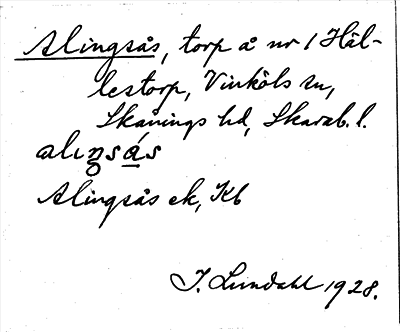 Alingsås, torp å nr 1 Häl-
lestorp, Vinköls sn,
Skånings hd, Skarab. l.
aliŋsås
Alingsås ek, Kb
I. Lundahl 1928.